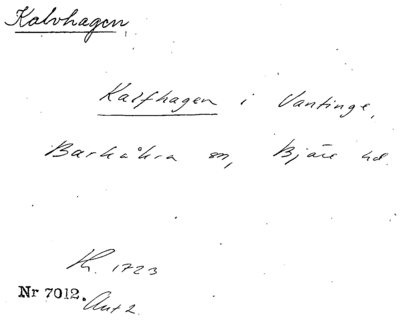 Kalvhagen
Kalfhagen i Vantinge,
Barkåkra sn, Bjäre hd.
Kr. 1723
Nr 7012. Avt 2.